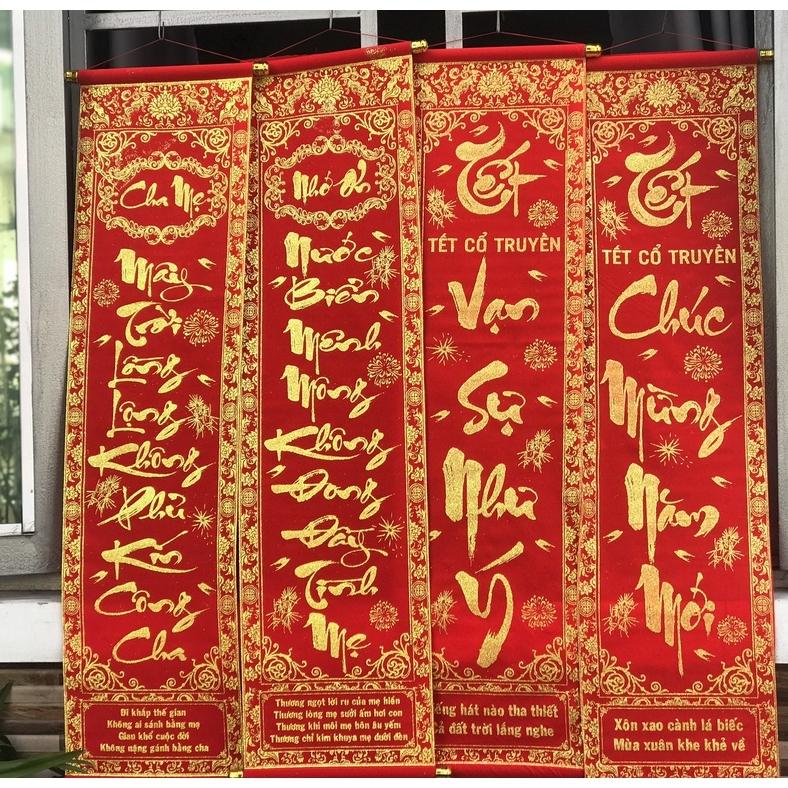 Cha Mẹ
Mây
Trời
Lồng
Lộng
Không
Phủ
Kín
Công
Cha
Đi khắp thế gian
Không ai sánh bằng mẹ
Gian khổ cuộc đời
Không nặng gánh hằng cha
Nhớ Ơn
Nước
Biển
Mênh
Mông
Không
Đong
Đầy
Tình
Mẹ
Thương ngọt lời ru của mẹ hiền
Thương lòng mẹ sưởi ấm hơi con
Thương khi môi mẹ hôn âu yếm
Thương chỉ kim khuya mẹ dưới đèn
Tết
TẾT CỔ TRUYỀN
Vạn
Sự
Như
Ý
hát nào tha thiết
đất trời lắng nghe
Tết
TẾT CỔ TRUYỀN
Chúc
Mừng
Năm
Mới
Xôn xao cành lá biếc
Mùa xuân khe khẽ về